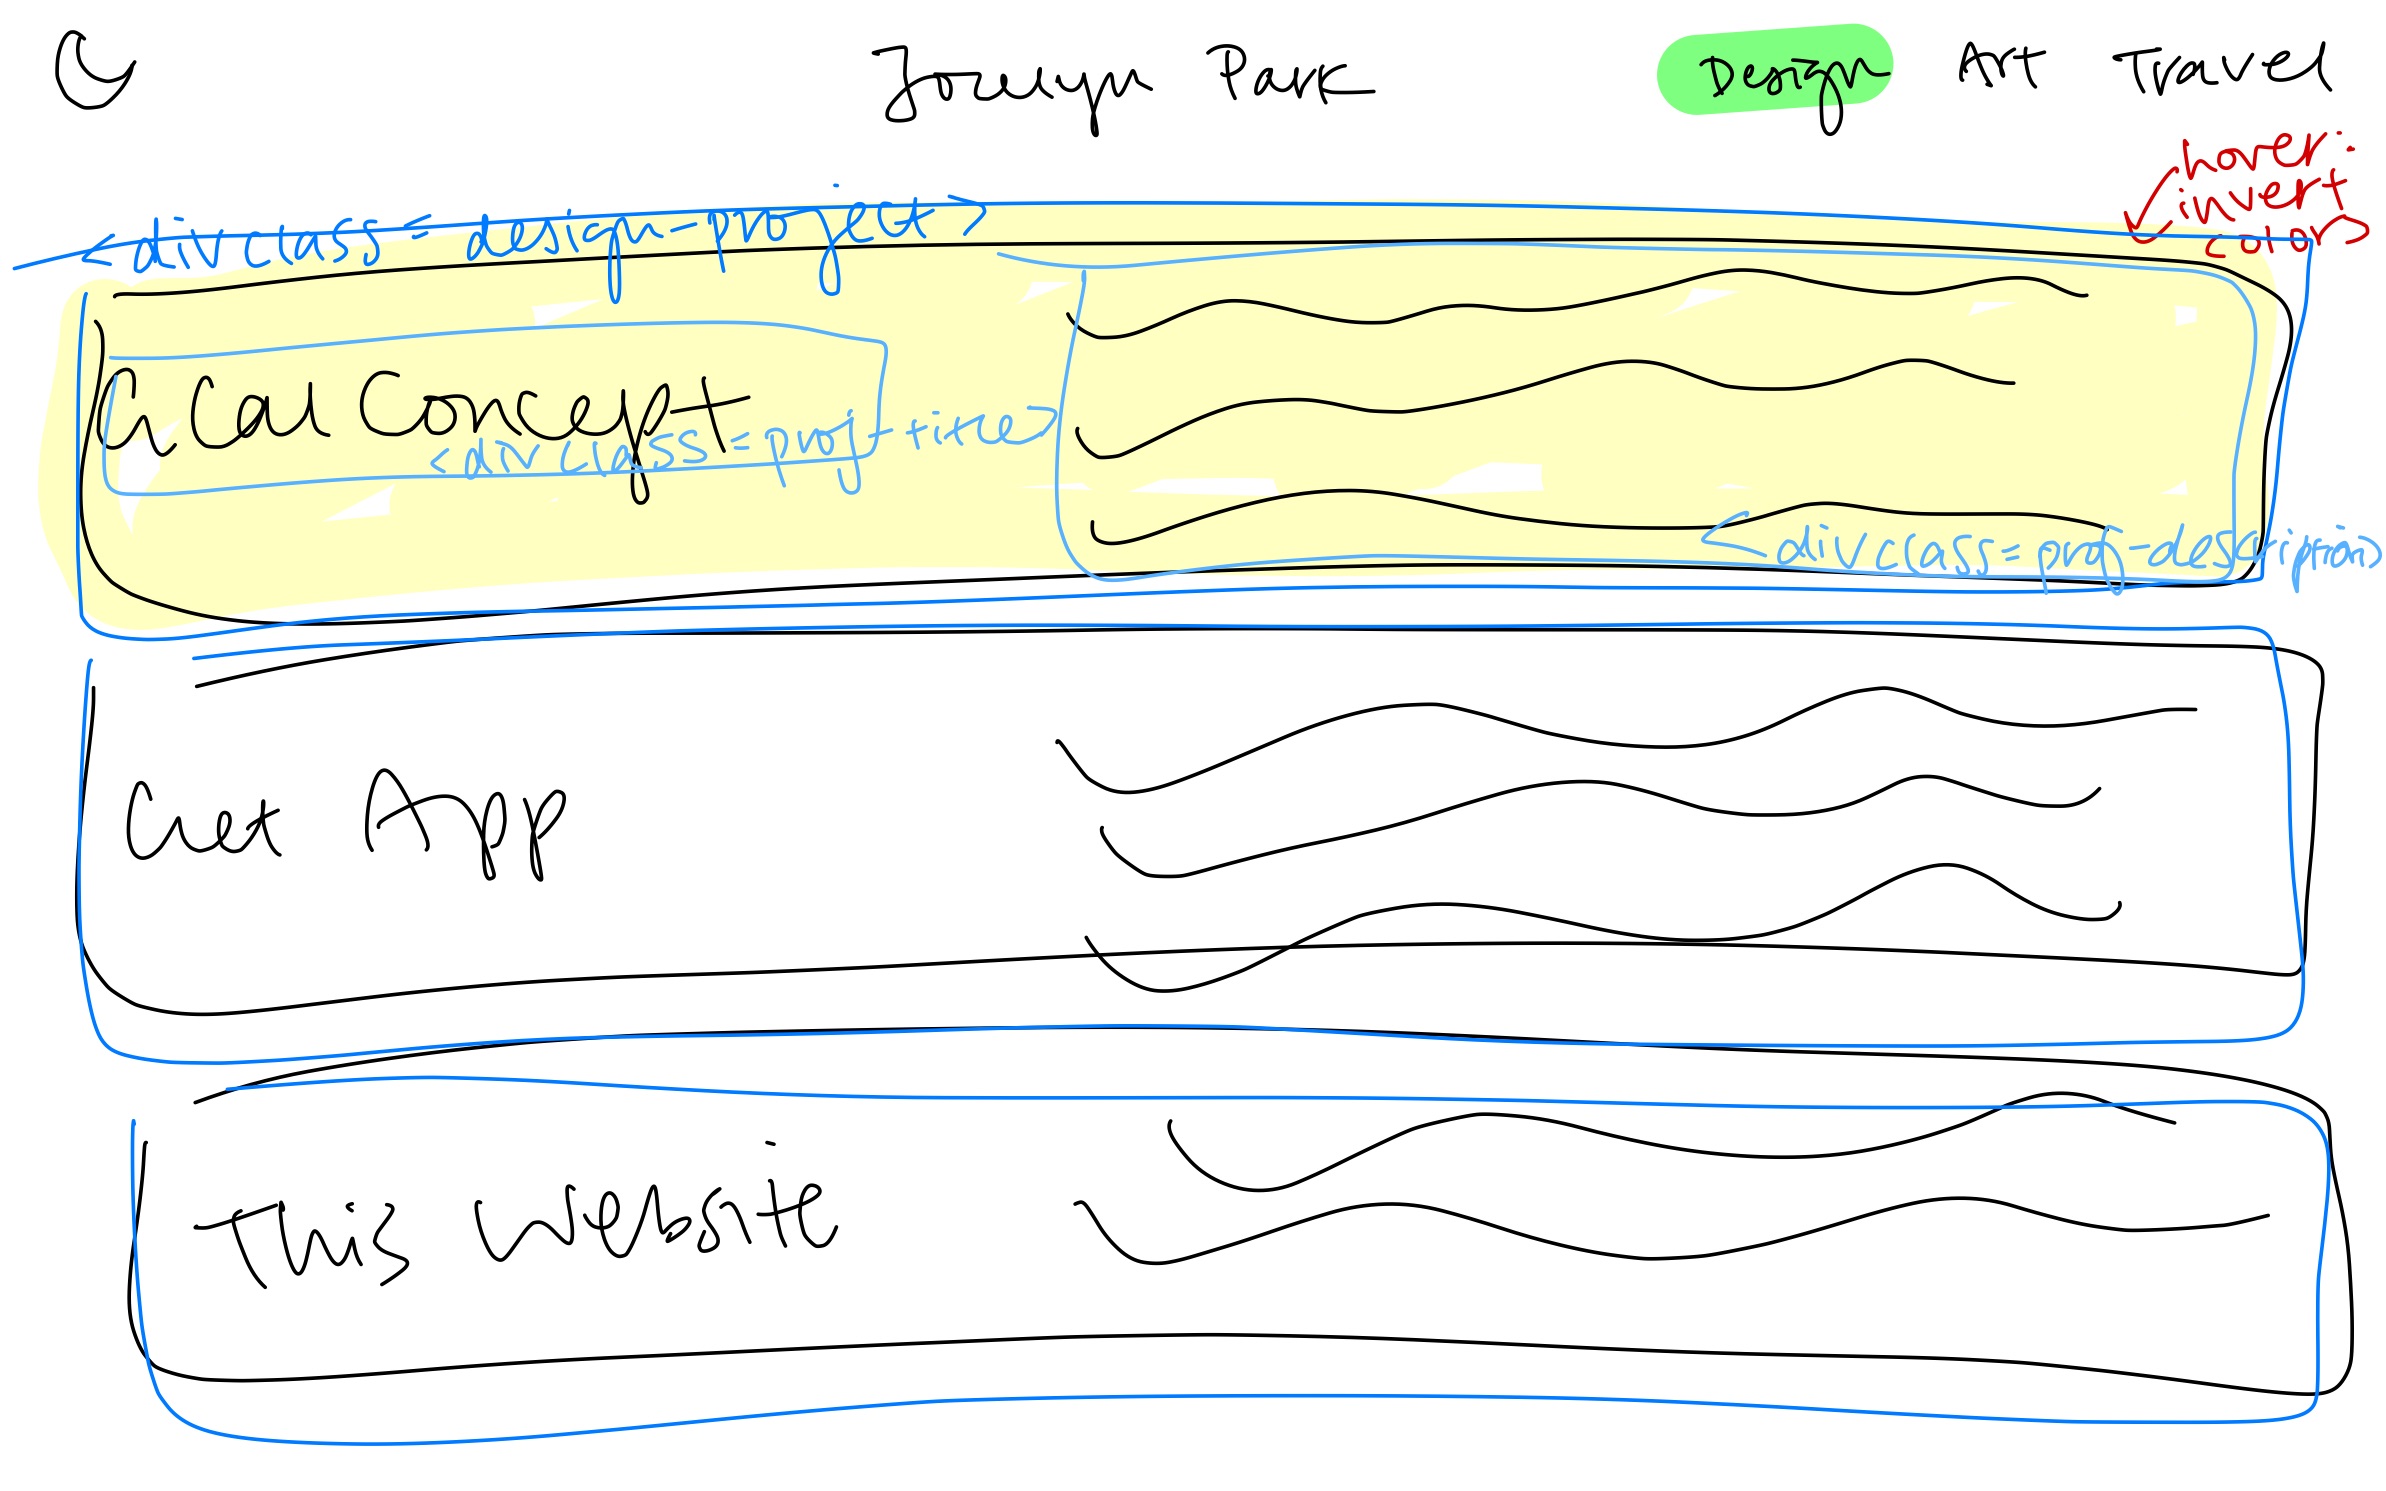 Jocelyn Park
Design Art Travel
hover:
invert
colors
<div class=design-project>
Cal Concept
<div class=proj-title>
<div class=proj-description>
App
This Website